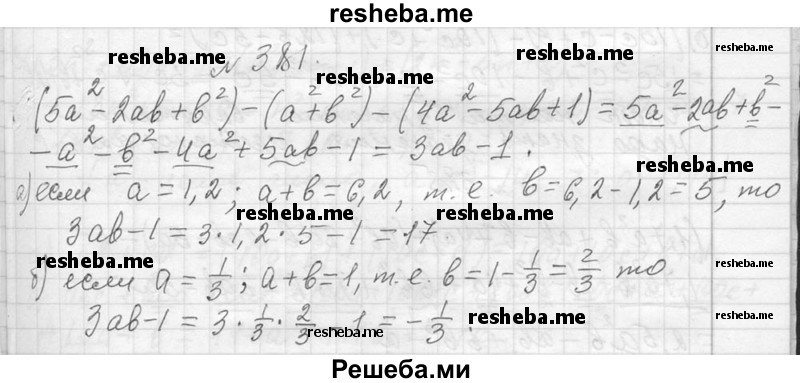 resheba.me
№ 381.
(5a²-2ab+b²)-(a²+b²)-(4a²-5ab+1)=5a²-2ab+b²-
-a²-b²-4a²+5ab-1=3ab-1.
а) если a=1,2; a+b=6,2, т.е. b=6,2-1,2=5, то
3ab-1=3·1,2·5-1=17.
б) если a=1/3; a+b=1, т.е. b=1-1/3=2/3 то
3ab-1=3·1/3·2/3-1=-1/3.
resheba.me
resheba.me
resheba.me
resheba.me
resheba.me
resheba.me
resheba.me
resheba.me
resheba.me
Решеба.ми